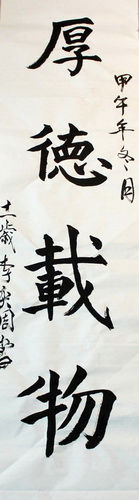 甲午年冬月
厚德載物
十一歲李奕周書